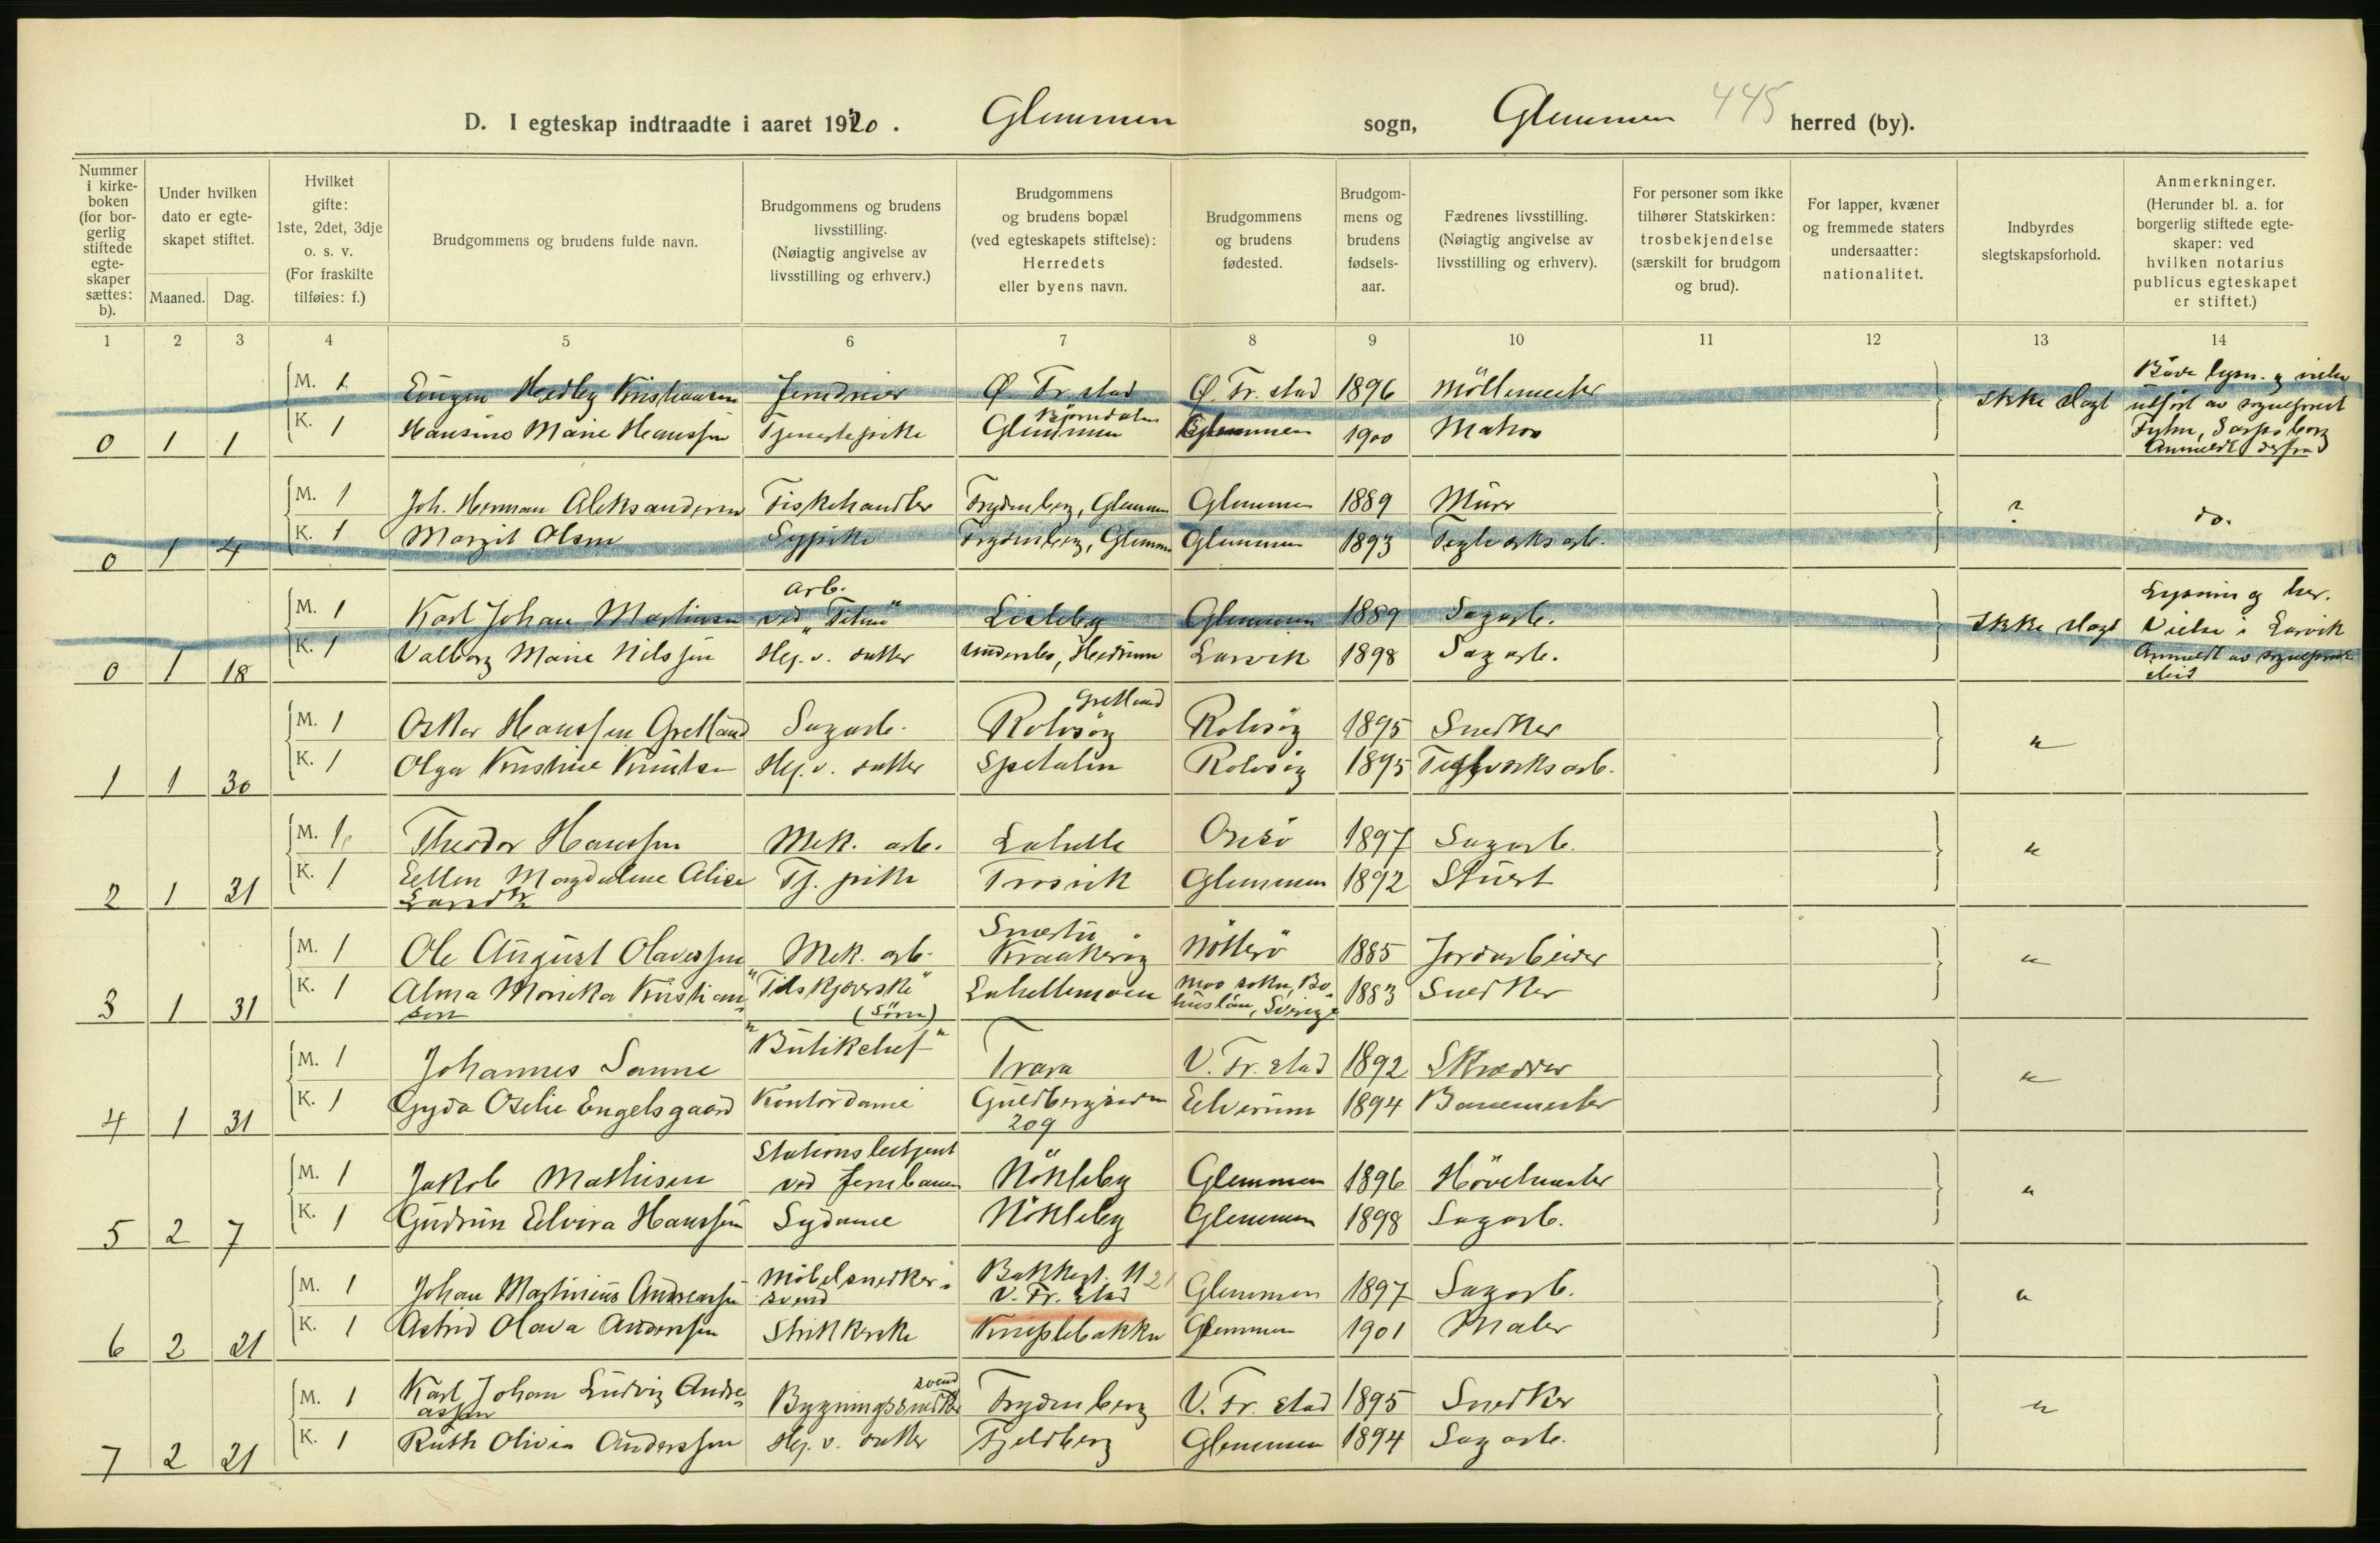 D. I egteskap indtraadte i aaret 1920. Glemmen sogn, Glemmen 445 herred (by).
Nummer i kirkeboken (for borgerlig stiftede egteskaper sættes: b).
Under hvilken dato er egteskapet stiftet.
Maaned. Dag.
Hvilket gifte: 1ste, 2det, 3dje o. s. v. (For fraskilte tilføies: f.)
Brudgommens og brudens fulde navn.
Brudgommens og brudens livsstilling. (Nøiagtig angivelse av livsstilling og erhverv.)
Brudgommens og brudens bopæl (ved egteskapets stiftelse): Herredets eller byens navn.
Brudgommens og brudens fødested.
Brudgommens og brudens fødselsaar.
Fædrenes livsstilling. (Nøiagtig angivelse av livsstilling og erhverv).
For personer som ikke tilhører Statskirken: trosbekjendelse (særskilt for brudgom og brud).
For lapper, kvæner og fremmede staters undersaatter: nationalitet.
Indbyrdes slegtskapsforhold.
Anmerkninger. (Herunder bl. a. for borgerlig stiftede egteskaper: ved hvilken notarius publicus egteskapet er stiftet.)
1 2 3 4 5 6 7 8 9 10 11 12 13 14
M. 1 Eugen Hedley Kristiansen Jerndreier Ø. Fr.stad Ø. Fr.stad 1896 Möllemester Ikke slegt
0 1 1 K. 1 Hansine Marie Hanssen Tjenestepike Bjørndalen Glemmen Glemmen 1900 Matros
Både lysn. g vielse
utført av sogneprest
Fyhn, Sarpsborg
Anmeldt derfra
M. 1 Joh. Herman Aleksandersen Fiskehandler Frydenberg, Glemmen Glemmen 1889 Murer ? do.
0 1 4 K. 1 Margit Olsen Sypike Frydenberg, Glemmen Glemmen 1893 Teglverksarb.
M. 1 Karl Johan Martinsen arb. ved "Titan" Lisleby Glemmen 1889 Sagarb. Ikke slegt
0 1 18 K. 1 Valborg Marie Nilssen Hj. v. datter Hedrum Larvik 1898 Sagarb.
Lysning her.
Vielse i Larvik
Anmeldt av sogneprest
M. 1 Oskar Hanssen Gretland Sagarb. Gretland Rolvsøy Rolvsøy 1895 Snedker "
1 1 30 K. 1 Olga Kristine Knutsen Hj. v. datter Spetalen Rolvsøy 1895 Teglverksarb.
M. 1 Theodor Hanssen Mek. arb. Lahelle Onsö 1897 Sagarb. "
2 1 31 K. 1 Ellen Magdalene Alice Tj. pike Trosvik Glemmen 1892 Stuert
M. 1 Ole August Olavessen Mek. arb. Kraakerøy Nötterö 1885 Jordarbeider "
3 1 31 K. 1 Alma Monika Kristiansen "Tilskjærerske" (Söm) Lahellemoen Moo sokn, Bohuslän, Sverige 1883 Snedker
M. 1 Johannes Sanne "Butikchef" Trara V. Fr.stad 1892 Skrædder "
4 1 31 K. 1 Gyda Oselie Engelsgaard Kontordame Guldbergsiden 209 Elverum 1894 Banemester
M. 1 Jakob Mathisen Stationsbetjent ved Jernbanen Nökleby Glemmen 1896 Hövelmester "
5 2 7 K. 1 Gudrun Elvira Hanssen Sydame Nökleby Glemmen 1898 Sagarb.
M. 1 Johan Martinius Andreassen Möbelsnedkersvend Bakkegt. 11 21 V. Fr.stad Glemmen 1897 Sagarb. "
6 2 21 K. 1 Astrid Olava Anderssen Strikkerske Kniplebakken Glemmen 1901 Maler
M. 1 Karl Johan Ludvig Andreassen Bygningssnedker svend Frydenberg V. Fr.stad 1895 Snedker "
7 2 21 K. 1 Ruth Olivia Anderssen Hj. v. datter Fjeldberg Glemmen 1894 Sagarb.